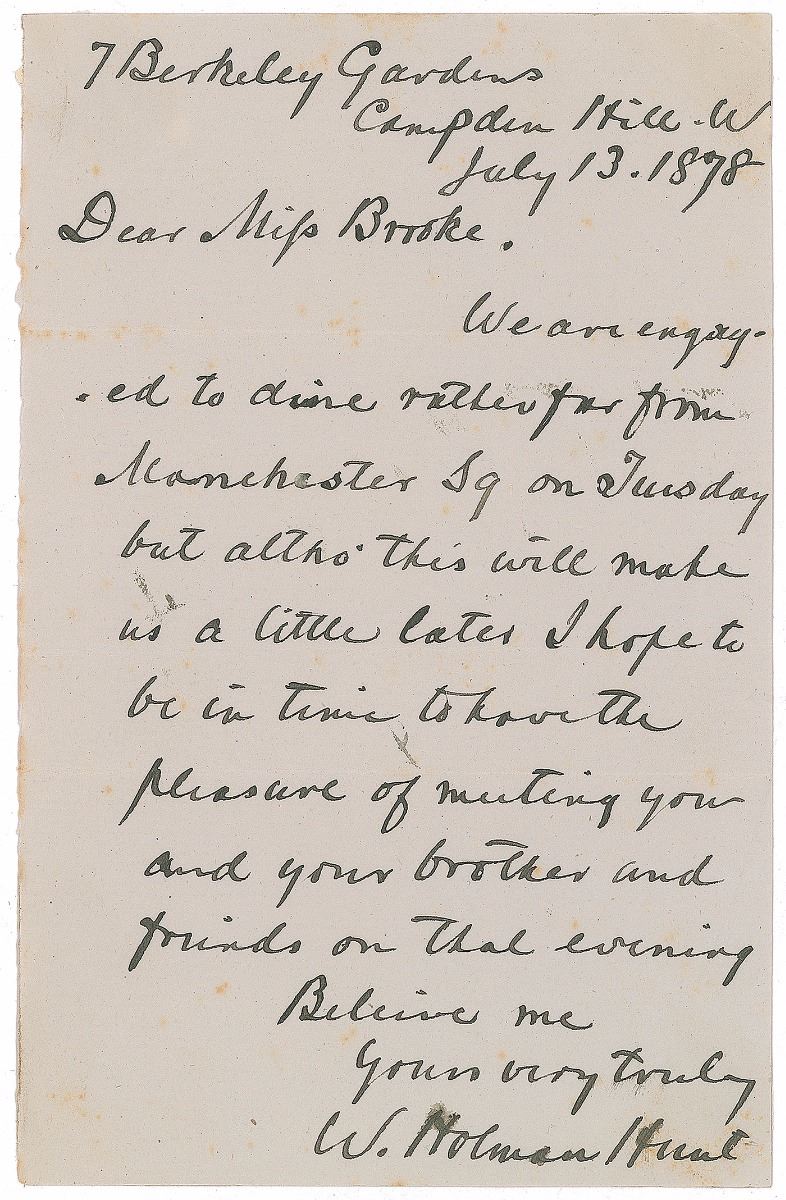 7 Berkeley Gardens
Campden Hill. W
July 13. 1878
Dear Miss Brooke.
We are engag-
-ed to dine rather far from
Manchester Sq on Tuesday
but altho' this will make
us a little later I hope to
be in time to have the
pleasure of meeting you
and your brother and
friends on that evening
Beleive me
Yours very truly
W. Holman Hunt